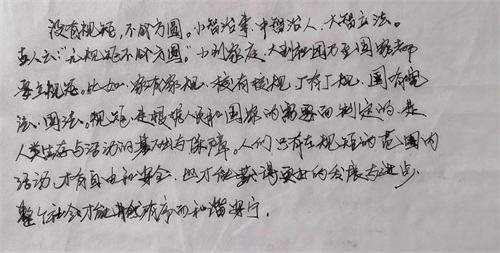 没有规矩,不成方圆。小智治事,中智治人,大智立法。
古人云"无规矩不成方圆。"小到家庭、大到社团乃至国家都
要立规矩。比如:家有家规、校有校规、厂有厂规、国有宪
法、国法。规矩是根据人民和国家的需要而制定的,是
人类生存与活动的基础与保障。人们只有在规矩的范围内
活动,才有自由和安全,也才能获得更好的发展与进步,
整个社会才能井然有序而和谐安宁。